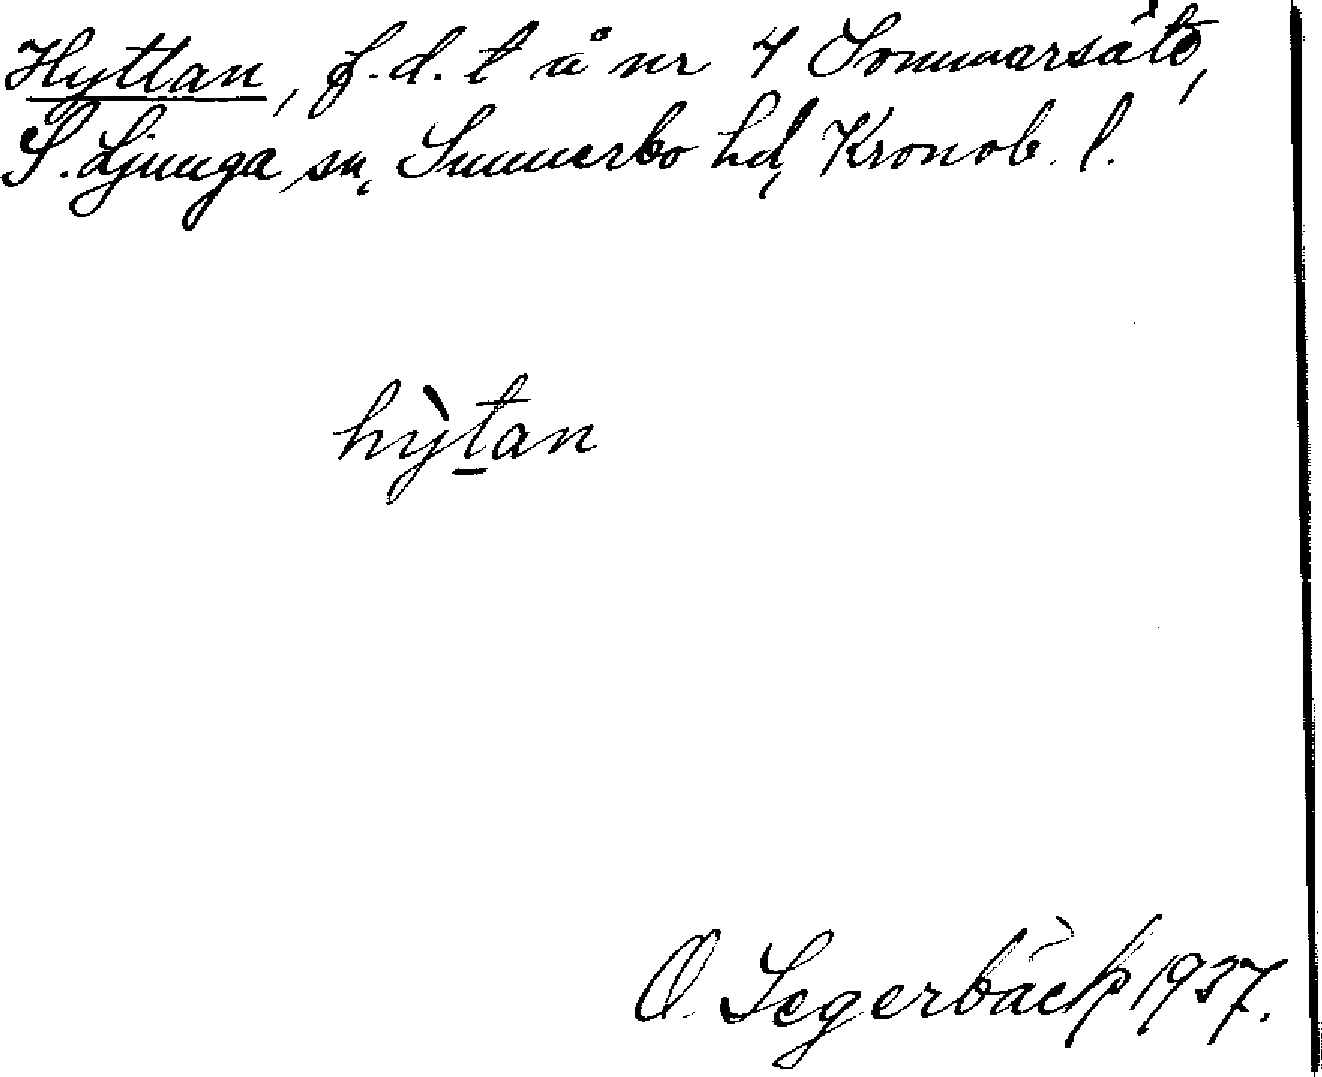 Hyttan, f.d. t å nr 4 Sommarsäte,
S. Ljunga sn, Sunnerbo hd, Kronob. l.
hỳtan
O. Segerbäck 1937.